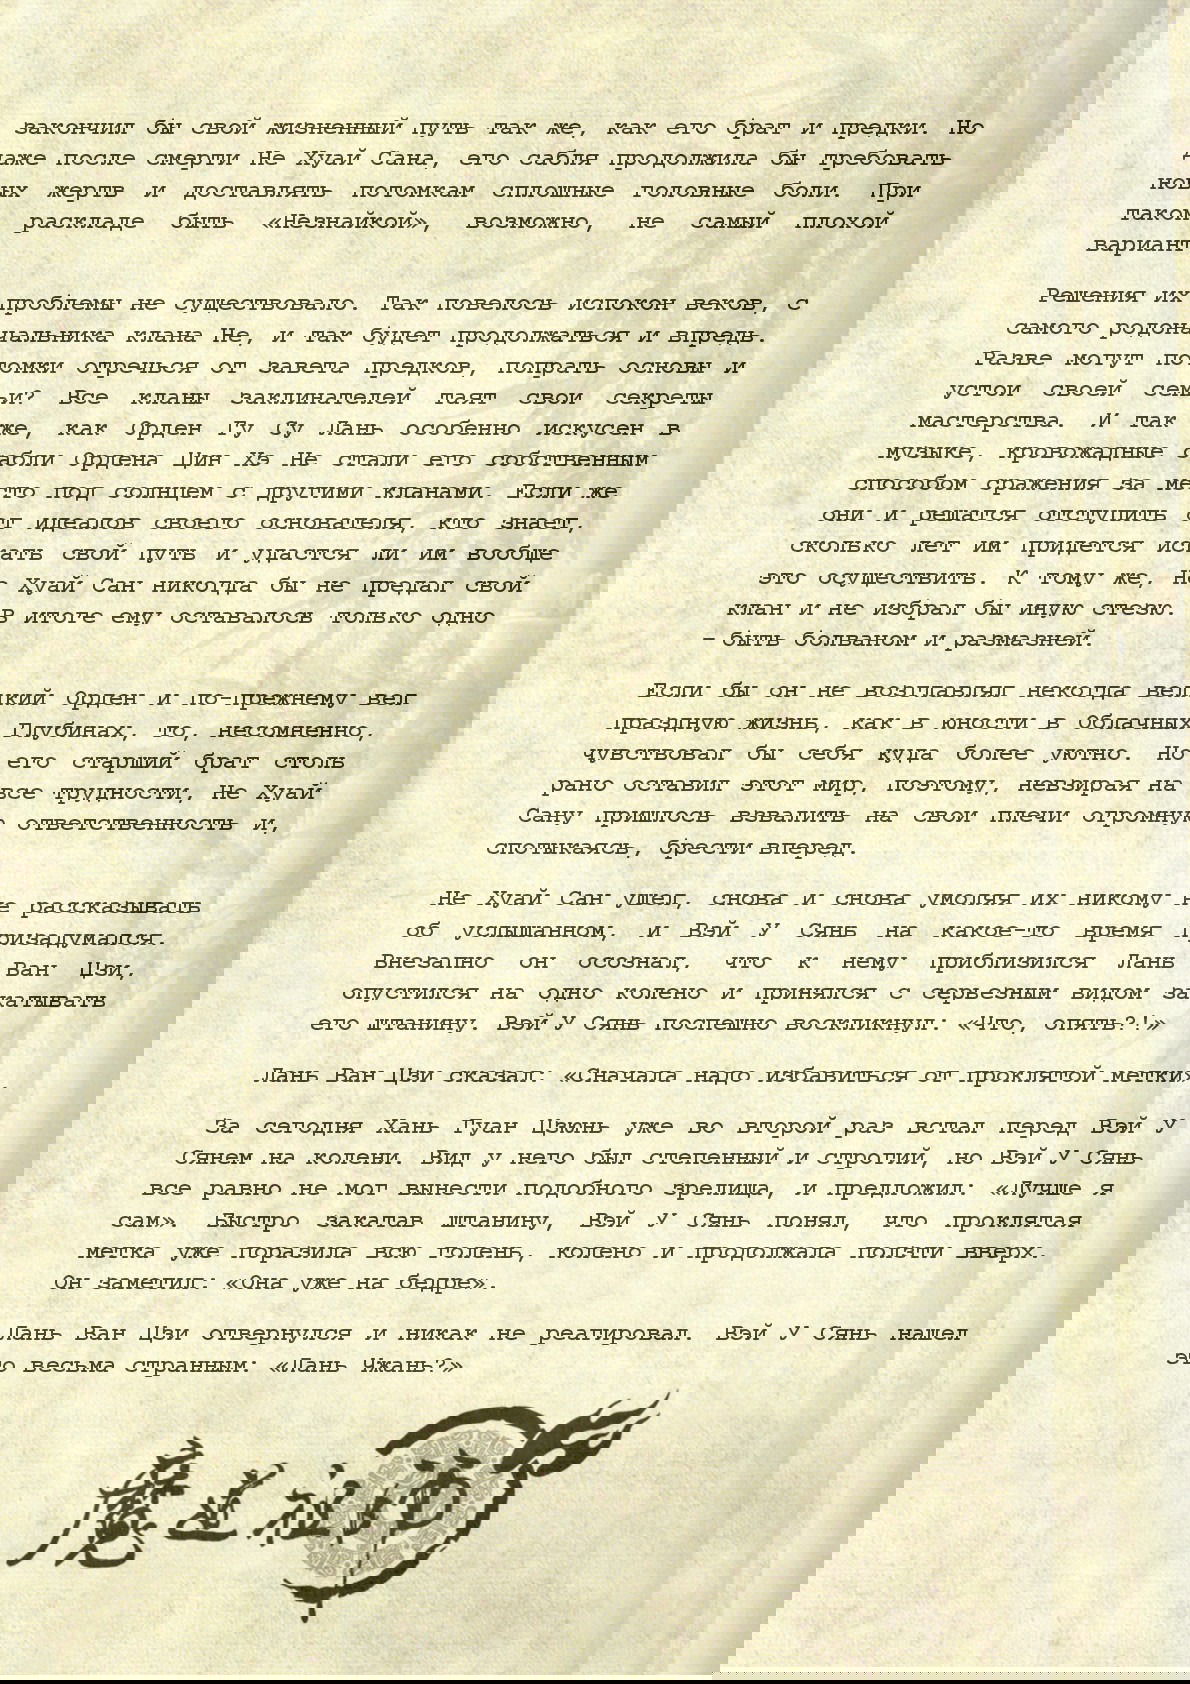 закончил бы свой жизненный путь так же, как его брат и предки. Но
даже после смерти Не Хуай Сана, его сабля продолжила бы требовать
новых жертв и доставлять потомкам сплошные головные боли. При
таком раскладе быть «Незнайкой», возможно, не самый плохой
вариант
Решения их проблемы не существовало. Так повелось испокон веков, с
самого родоначальника клана Не, и так будет продолжаться и впредь.
Разве могут потомки отречься от завета предков, попрать основы и
устои своей семьи? Все кланы заклинателей таят свои секреты
мастерства. И так же, как Орден Гу Су Лань особенно искусен в
музыке, кровожадные сабли Ордена Цин Хэ Не стали его собственным
способом сражения за место под солнцем с другими кланами. Если же
они и решатся отступить от идеалов своего основателя, кто знает,
сколько лет им придется искать свой путь и удастся ли им вообще
это осуществить. К тому же, Не Хуай Сан никогда бы не предал свой
клан и не избрал бы иную стезю. В итоге ему оставалось только одно
– быть болваном и размазней.
Если бы он не возглавлял некогда великий Орден и по-прежнему вел
праздную жизнь, как в юности в Облачных Глубинах, то, несомненно,
чувствовал бы себя куда более уютно. Но его старший брат столь
рано оставил этот мир, поэтому, невзирая на все трудности, Не Хуай
Сану пришлось взвалить на свои плечи огромную ответственность и,
спотыкаясь, брести вперед.
Не Хуай Сан ушел, снова и снова умоляя их никому не рассказывать
об услышанном, и Вэй У Сянь на какое-то время призадумался.
Внезапно он осознал, что к нему приблизился Лань Ван Цзи,
опустился на одно колено и принялся с серьезным видом закатывать
его штанину. Вэй У Сянь поспешно воскликнул: «Что, опять?!»
Лань Ван Цзи сказал: «Сначала надо избавиться от проклятой метки».
За сегодня Хань Гуан Цзюнь уже во второй раз встал перед Вэй У
Сянем на колени. Вид у него был степенный и строгий, но Вэй У Сянь
все равно не мог вынести подобного зрелища, и предложил: «Лучше я
сам». Быстро закатав штанину, Вэй У Сянь понял, что проклятая
метка уже поразила всю голень, колено и продолжала ползти вверх.
Он заметил: «Она уже на бедре».
Лань Ван Цзи отвернулся и никак не реагировал. Вэй У Сянь нашел
это весьма странным: «Лань Чжань?»
魔道祖师